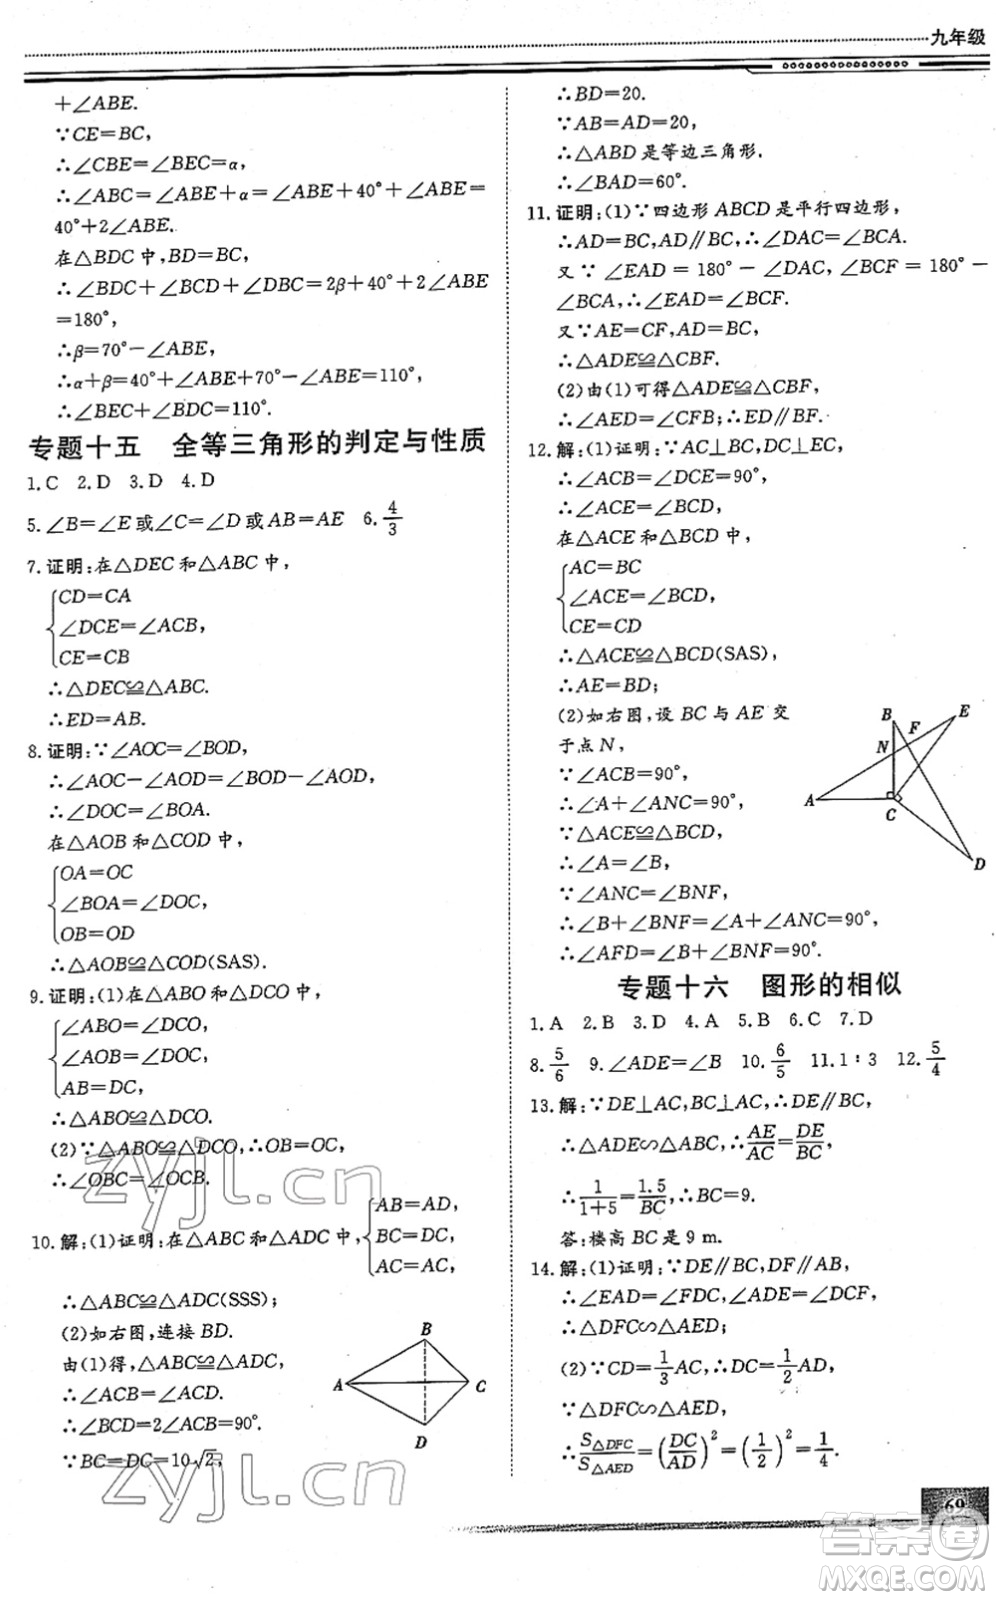 九年级
+∠ABE.
∵CE=BC,
∴∠CBE=∠BEC=α,
∴∠ABC=∠ABE+α=∠ABE+40°+∠ABE=
40°+2∠ABE.
在△BDC中,BD=BC,
∴∠BDC+∠BCD+∠DBC=2β+40°+2∠ABE
=180°,
∴β=70°-∠ABE,
∴α+β=40°+∠ABE+70°-∠ABE=110°,
∴∠BEC+∠BDC=110°.
专题十五 全等三角形的判定与性质
1.C 2.D 3.D 4.D
5.∠B=∠E或∠C=∠D或AB=AE 6.4/3
7.证明:在△DEC和△ABC中,
CD=CA
∠DCE=∠ACB,
CE=CB
∴△DEC≌△ABC.
∴ED=AB.
8.证明:∵∠AOC=∠BOD,
∴∠AOC-∠AOD=∠BOD-∠AOD,
∴∠DOC=∠BOA.
在△AOB和△COD中,
OA=OC
∠BOA=∠DOC,
OB=OD
∴△AOB≌△COD(SAS).
9.证明:(1)在△ABO和△DCO中,
∠ABO=∠DCO,
∠AOB=∠DOC,
AB=DC,
∴△ABO≌△DCO.
(2)∵△ABO≌△DCO,∴OB=OC,
∴∠OBC=∠OCB.
10.解:(1)证明:在△ABC和△ADC中,
AB=AD,
BC=DC,
AC=AC,
∴△ABC≌△ADC(SSS);
(2)如右图,连接BD.
由(1)得,△ABC≌△ADC,
∴∠ACB=∠ACD.
∴∠BCD=2∠ACB=90°.
∵BC=DC=10√2,
B
A
C
D
∴BD=20.
∵AB=AD=20,
∴△ABD是等边三角形.
∴∠BAD=60°.
11.证明:(1)∵四边形ABCD是平行四边形,
∴AD=BC,AD∥BC,∴∠DAC=∠BCA.
又∵∠EAD=180°-∠DAC,∠BCF=180°-
∠BCA,∴∠EAD=∠BCF.
又∵AE=CF,AD=BC,
∴△ADE≌△CBF.
(2)由(1)可得△ADE≌△CBF,
∴∠AED=∠CFB;∴ED∥BF.
12.解:(1)证明:∵AC⊥BC,DC⊥EC,
∴∠ACB=∠DCE=90°.
∴∠ACE=∠BCD,
在△ACE和△BCD中,
AC=BC
∠ACE=∠BCD,
CE=CD
∴△ACE≌△BCD(SAS),
∴AE=BD;
(2)如右图,设BC与AE交
于点N,
∵∠ACB=90°,
∴∠A+∠ANC=90°,
∵△ACE≌△BCD,
∴∠A=∠B,
∵∠ANC=∠BNF,
∴∠B+∠BNF=∠A+∠ANC=90°,
∴∠AFD=∠B+∠BNF=90°.
B
E
F
N
A
C
D
专题十六 图形的相似
1.A 2.B 3.D 4.A 5.B 6.C 7.D
8.5/6 9.∠ADE=∠B 10.6/5 11.1∶3 12.5/4
13.解:∵DE⊥AC,BC⊥AC,∴DE∥BC,
∴△ADE∽△ABC,∴AE/AC=DE/BC,
∴1/(1+5)=1.5/BC,∴BC=9.
答:楼高BC是9 m.
14.解:(1)证明:∵DE∥BC,DF∥AB,
∴∠EAD=∠FDC,∠ADE=∠DCF,
∴△DFC∽△AED;
(2)∵CD=1/3AC,∴DC=1/2AD,
∵△DFC∽△AED,
∴S△DFC/S△AED=(DC/AD)²=(1/2)²=1/4.
69
zyjl.cn
zyjl.cn
答案圈
MXQE.COM